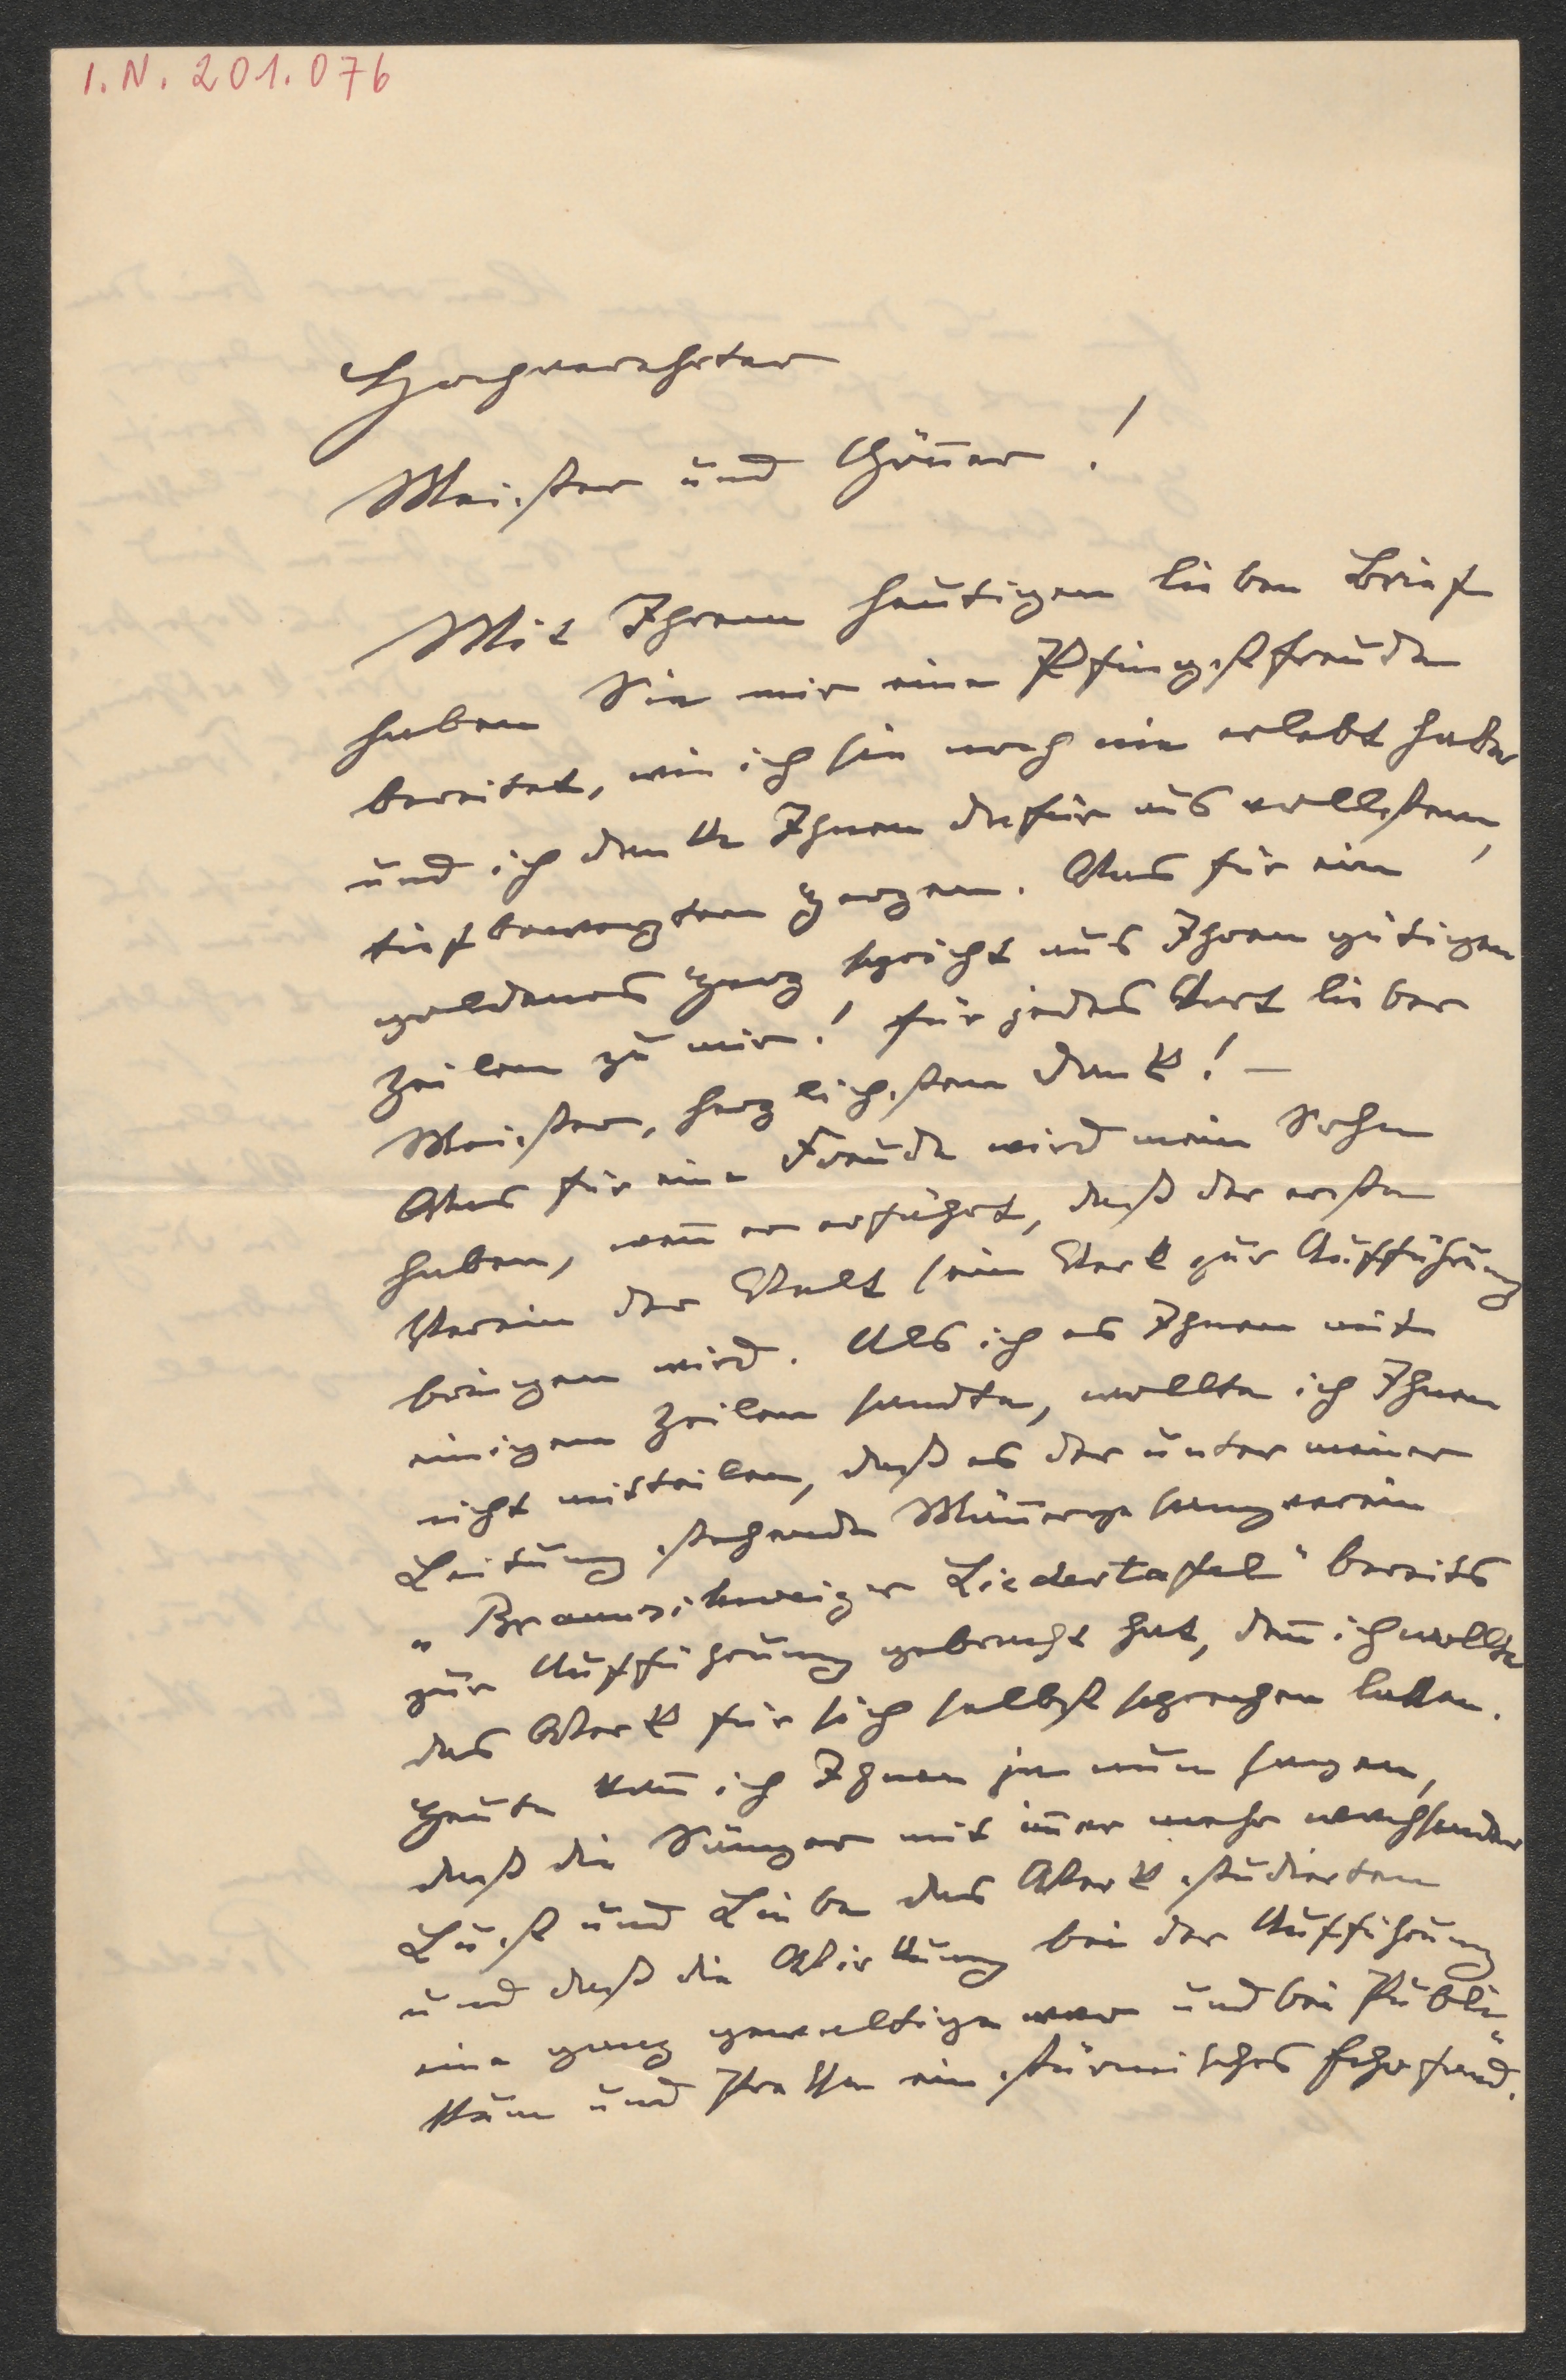 I.N. 201.076
Hochverehrter
Meister und Gönner!
Mit Ihrem heutigen lieben Brief
haben Sie mir eine Pfingstfreude
bereitet, wie ich sie noch nie erlebt habe
und ich danke Ihnen dafür aus vollstem,
tiefbewegtem Herzen. Was für ein
goldenes Herz spricht aus Ihren gütigen
Zeilen zu mir! Für jedes Wort lieber
Meister, herzlichsten Dank! —
Was für eine Freude wird mein Sohn
haben, wenn er erfährt, daß der erste
Verein der Welt sein Werk zur Aufführung
bringen wird. Als ich es Ihnen mit
einigen Zeilen sandte, wollte ich Ihnen
nicht mitteilen, daß es der unter meiner
Leitung stehende Männergesangverein
„Braunschweiger Liedertafel" bereits
zur Aufführung gebracht hat, denn ich wollte
das Werk für sich selbst sprechen lassen.
Heute kann ich Ihnen ja nun sagen,
daß die Sänger mit immer mehr wachsender
Lust und Liebe das Werk studierten
und daß die Wirkung bei der Aufführung
eine ganz gewaltige war und bei Publi-
kum und Presse ein stürmisches Echo fand.